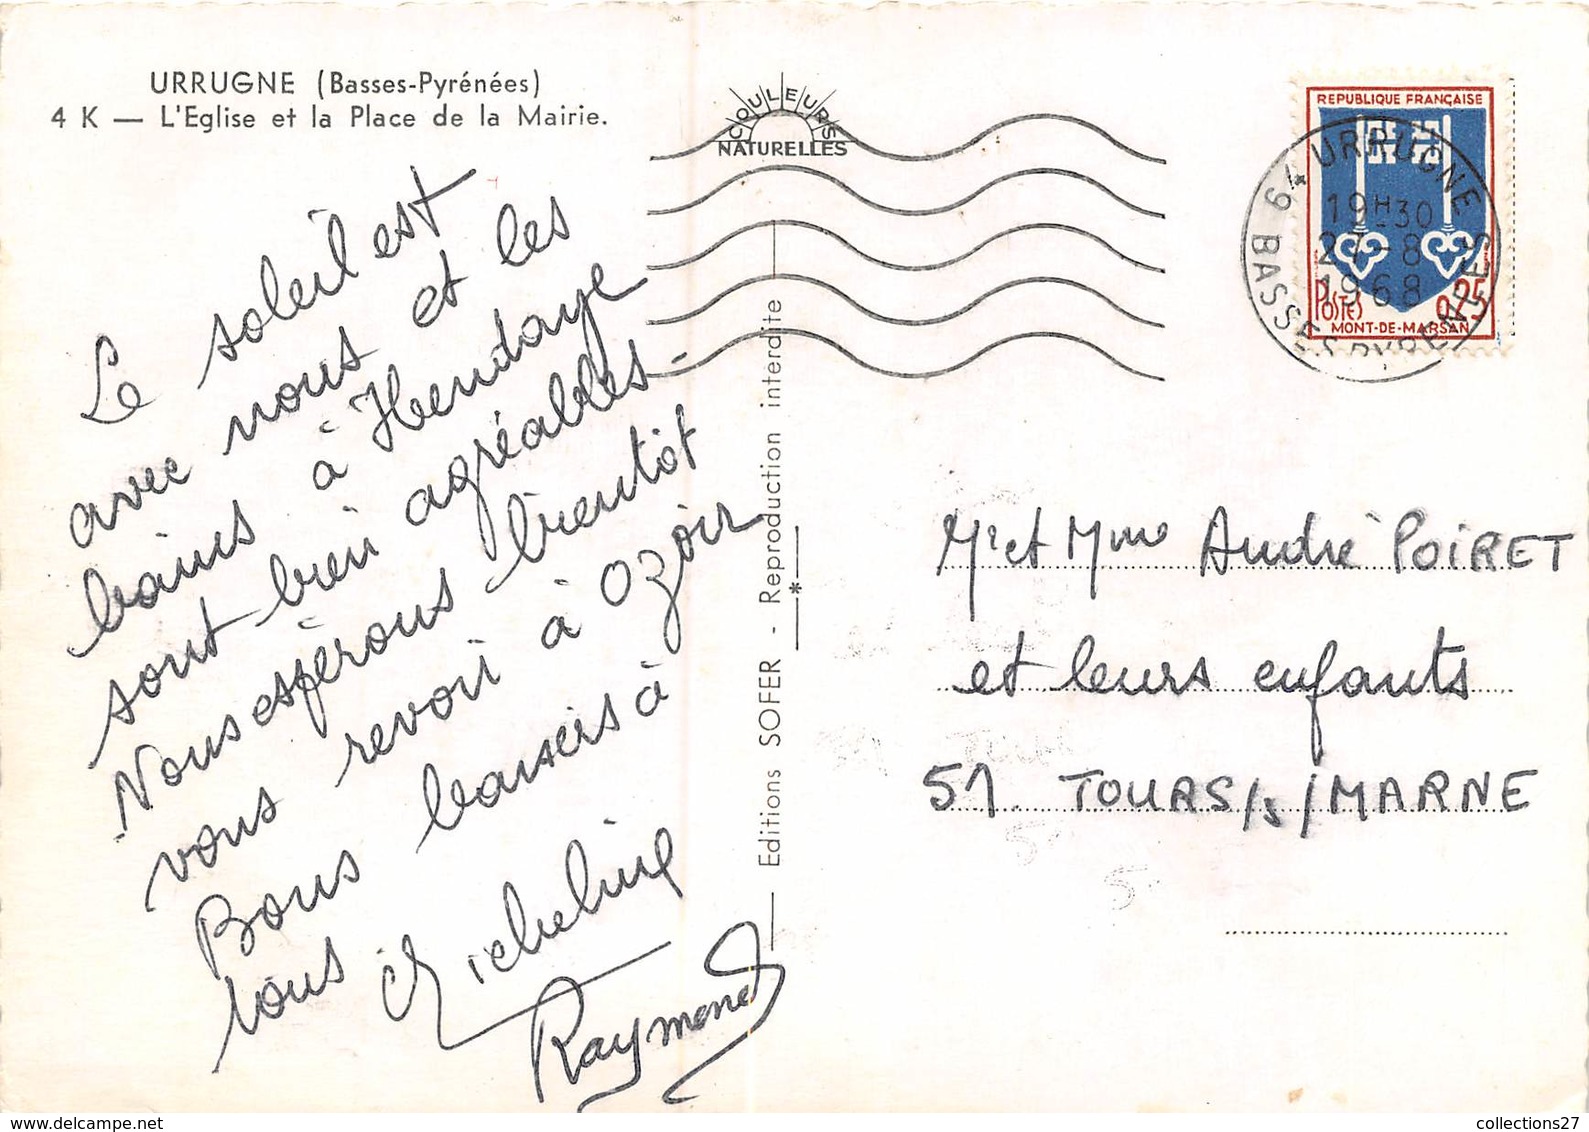 URRUGNE (Basses-Pyrénées)
4 K — L'Eglise et la Place de la Mairie.
COULEURS
NATURELLES
REPUBLIQUE FRANÇAISE
POSTES
0,25
MONT-DE-MARSAN
64 URRUGNE
19H30
27-8
1968
BASSES PYRENEES
Le soleil est
avec nous et les
bains à Hendaye
sont bien agréables -
Nous espérons bientôt
vous revoir à Ozoir
Bons baisers à
tous
Micheline
Raymond
Editions SOFER - Reproduction interdite
*
Mr et Mme André POIRET
et leurs enfants
51 TOURS/s/MARNE
collections27